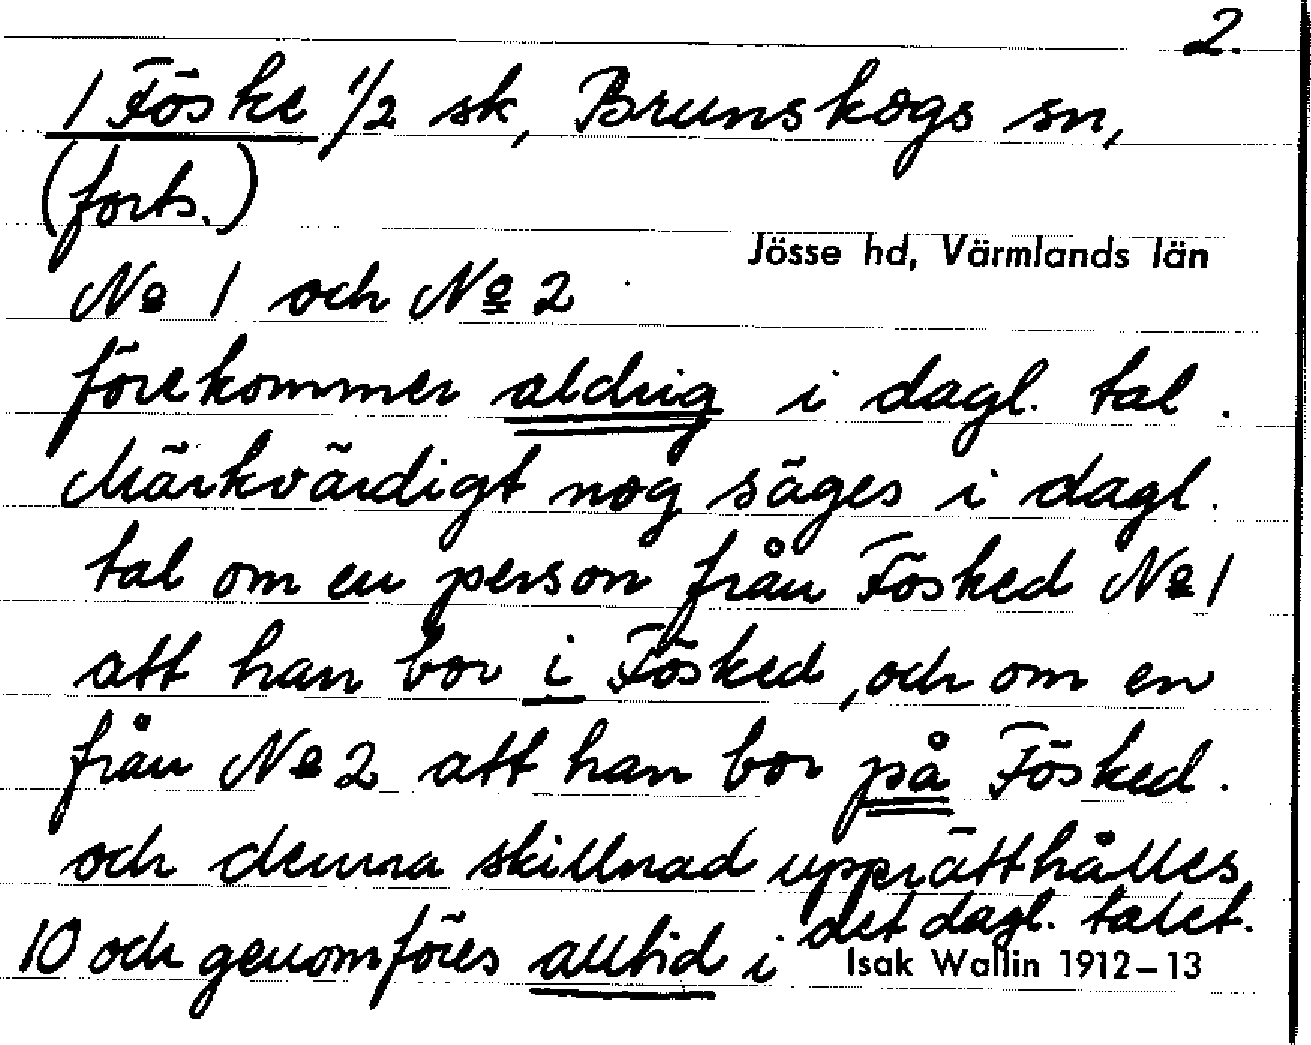 2.
1 Föske 1/2 sk, Brunskogs sn,
(forts.)
Jösse hd, Värmlands län
No 1 och No 2
förekommer aldrig i dagl. tal.
Märkvärdigt nog säges i dagl.
tal om en person från Fösked No 1
att han bor i Fösked, och om en
från No 2 att han bor på Fösked.
och denna skillnad upprätthålles
10 och genomföres alltid i det dagl. talet.
Isak Wallin 1912–13